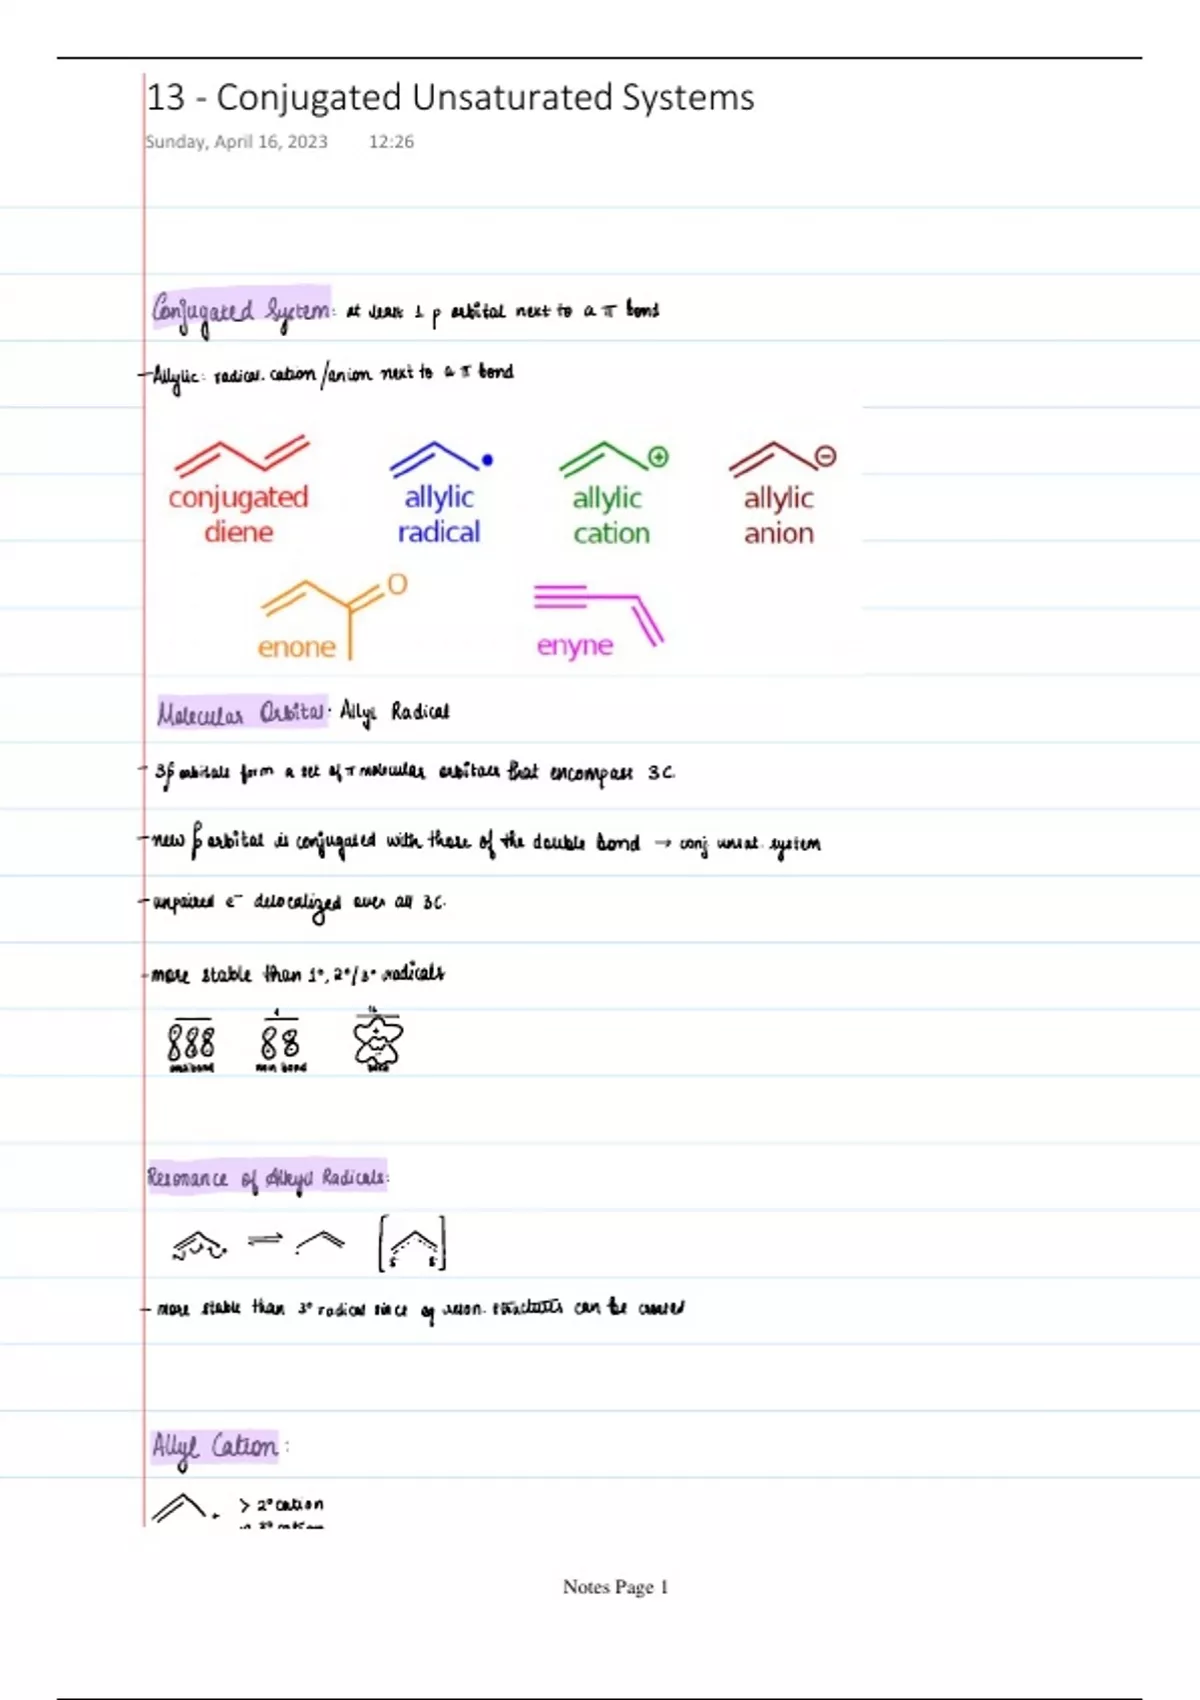 13 - Conjugated Unsaturated Systems
Sunday, April 16, 2023 12:26
Conjugated System: at least 1 p orbital next to a π bond
- Allylic: radical. cation/anion next to a π bond
conjugated diene
allylic radical
allylic cation
allylic anion
O
enone
enyne
Molecular Orbital: Allyl Radical
- 3p orbitals form a set of π molecular orbitals that encompass 3C.
- new p orbital is conjugated with those of the double bond → conj unsat. system
- unpaired e⁻ delocalized over all 3C.
- more stable than 1°, 2°/3° radicals
antibond non bond bond
Resonance of Radicals:
- more stable than 3° radical since eq reson. structures can be
Allyl Cation:
+ > 2° cation
3° cation
Notes Page 1